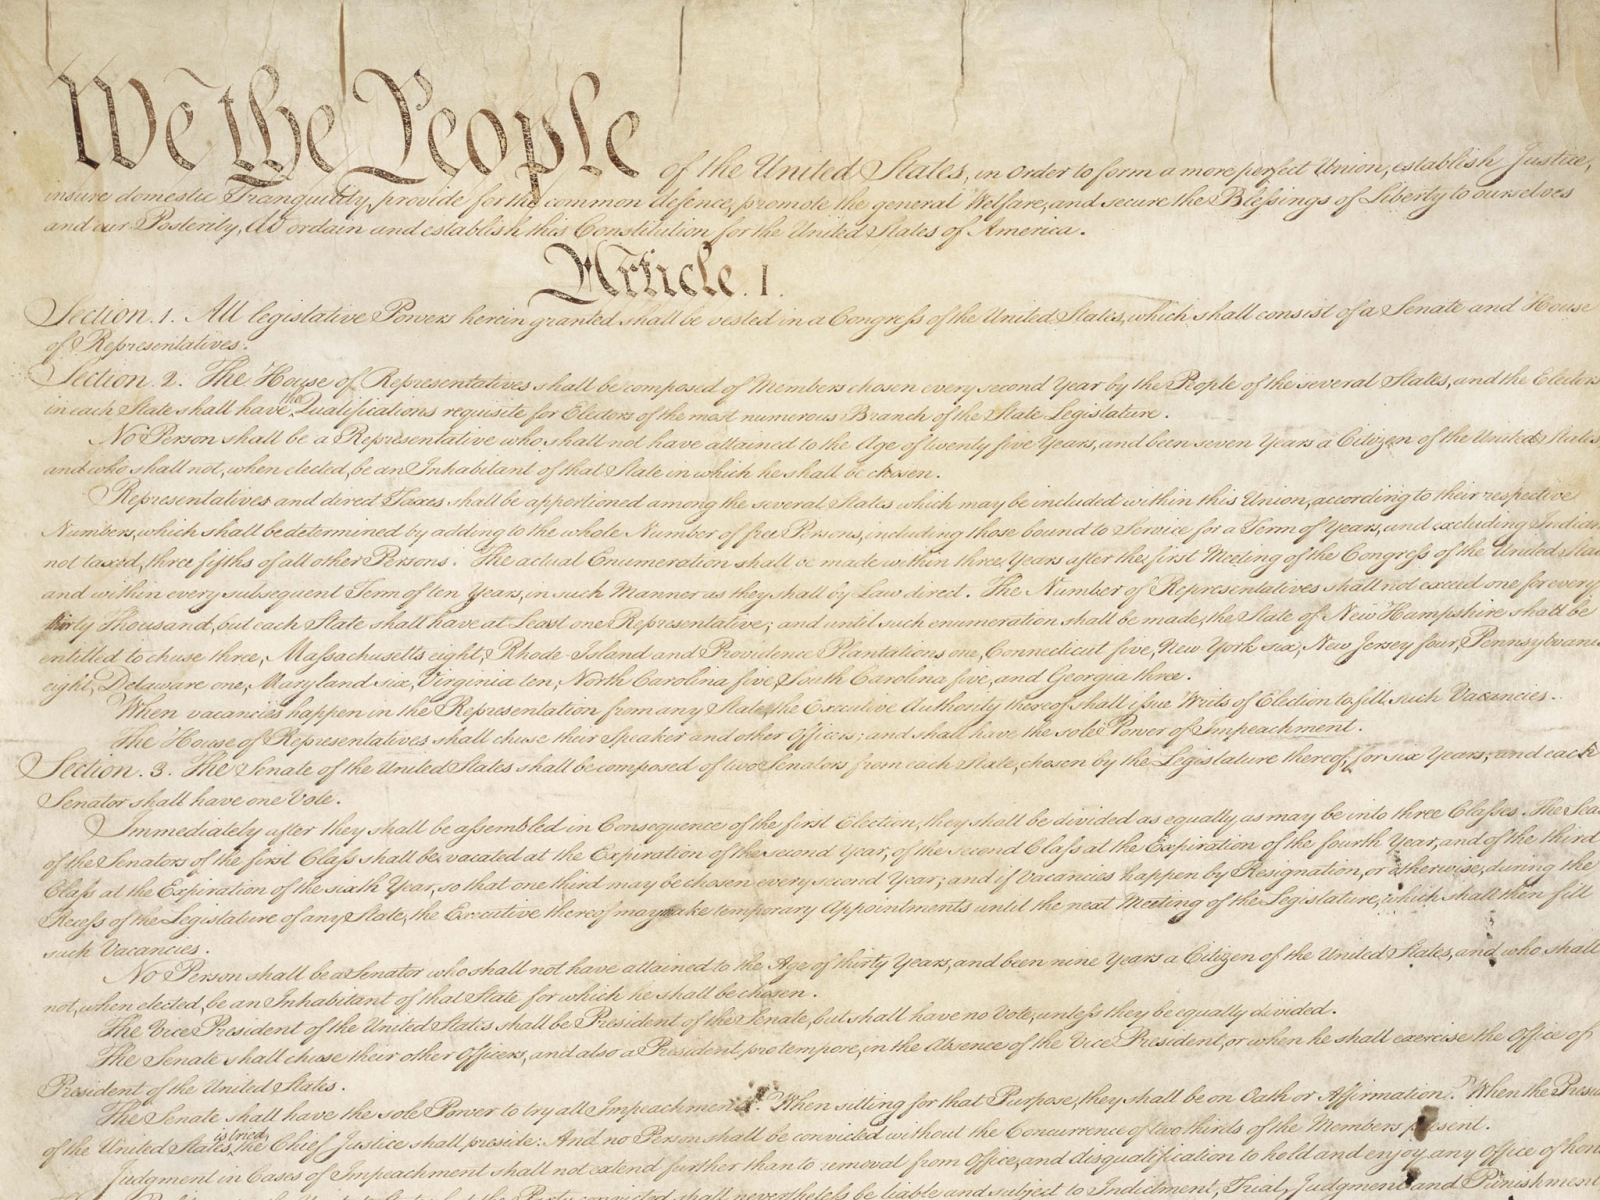 We the People of the United States, in Order to form a more perfect Union, establish Justice,
insure domestic Tranquility, provide for the common defence, promote the general Welfare, and secure the Blessings of Liberty to ourselves
and our Posterity, do ordain and establish this Constitution for the United States of America.
Article. I.
Section. 1. All legislative Powers herein granted shall be vested in a Congress of the United States, which shall consist of a Senate and House
of Representatives.
Section. 2. The House of Representatives shall be composed of Members chosen every second Year by the People of the several States, and the Electors
in each State shall have the Qualifications requisite for Electors of the most numerous Branch of the State Legislature.
No Person shall be a Representative who shall not have attained to the Age of twenty five Years, and been seven Years a Citizen of the United States,
and who shall not, when elected, be an Inhabitant of that State in which he shall be chosen.
Representatives and direct Taxes shall be apportioned among the several States which may be included within this Union, according to their respective
Numbers, which shall be determined by adding to the whole Number of free Persons, including those bound to Service for a Term of Years, and excluding Indians
not taxed, three fifths of all other Persons. The actual Enumeration shall be made within three Years after the first Meeting of the Congress of the United States,
and within every subsequent Term of ten Years, in such Manner as they shall by Law direct. The Number of Representatives shall not exceed one for every
thirty Thousand, but each State shall have at Least one Representative; and until such enumeration shall be made, the State of New Hampshire shall be
entitled to chuse three, Massachusetts eight, Rhode-Island and Providence Plantations one, Connecticut five, New-York six, New Jersey four, Pennsylvania
eight, Delaware one, Maryland six, Virginia ten, North Carolina five, South Carolina five, and Georgia three.
When vacancies happen in the Representation from any State, the Executive Authority thereof shall issue Writs of Election to fill such Vacancies.
The House of Representatives shall chuse their Speaker and other Officers; and shall have the sole Power of Impeachment.
Section. 3. The Senate of the United States shall be composed of two Senators from each State, chosen by the Legislature thereof, for six Years; and each
Senator shall have one Vote.
Immediately after they shall be assembled in Consequence of the first Election, they shall be divided as equally as may be into three Classes. The Sea
of the Senators of the first Class shall be vacated at the Expiration of the second Year, of the second Class at the Expiration of the fourth Year, and of the third
Class at the Expiration of the sixth Year, so that one third may be chosen every second Year; and if Vacancies happen by Resignation, or otherwise, during the
Recess of the Legislature of any State, the Executive thereof may make temporary Appointments until the next Meeting of the Legislature, which shall then fill
such Vacancies.
No Person shall be a Senator who shall not have attained to the Age of thirty Years, and been nine Years a Citizen of the United States, and who shall
not, when elected, be an Inhabitant of that State for which he shall be chosen.
The Vice President of the United States shall be President of the Senate, but shall have no Vote, unless they be equally divided.
The Senate shall chuse their other Officers, and also a President pro tempore, in the Absence of the Vice President, or when he shall exercise the Office of
President of the United States.
The Senate shall have the sole Power to try all Impeachments. When sitting for that Purpose, they shall be on Oath or Affirmation. When the Presi
of the United States is tried, the Chief Justice shall preside: And no Person shall be convicted without the Concurrence of two thirds of the Members present.
Judgment in Cases of Impeachment shall not extend further than to removal from Office, and disqualification to hold and enjoy any Office of hon
shall nevertheless be liable and subject to Indictment, Trial, Judgment and Punishment